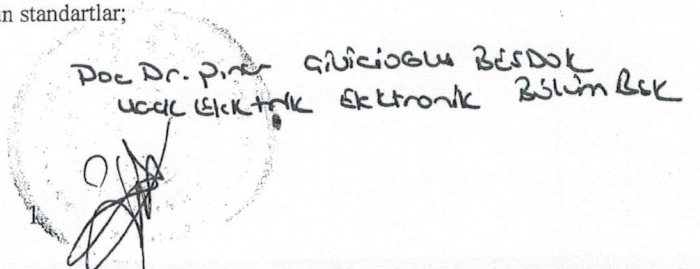 n standartlar;
Doc Dr. Pınar ÇİVİCİOGLU BESDOK
Ucak Elektrik Elektronik Bölüm Bşk
1.